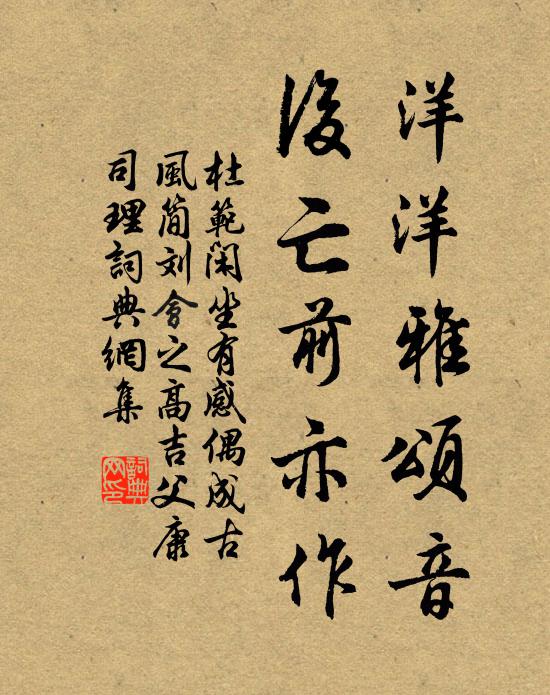 洋洋雅頌音
後亡前亦作
杜範閑坐有感偶成古
風簡刘會之高吉父康
司理詞典網集
詞典
网印